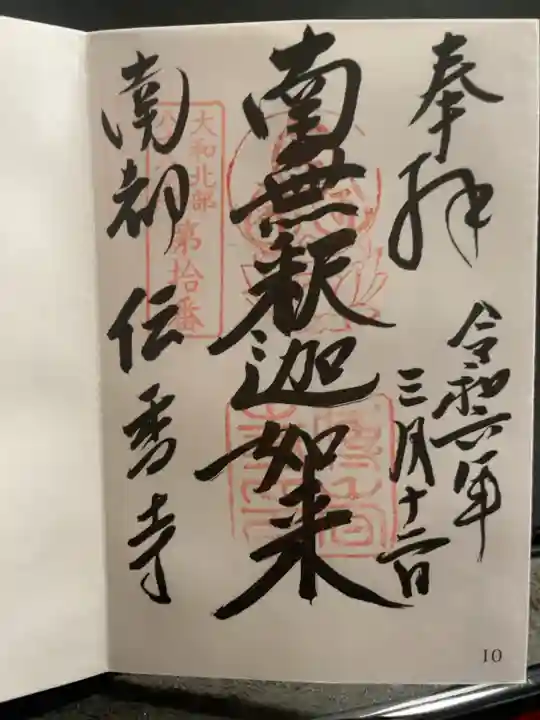 奉拝
令和六年
三月十二日
南無釈迦如来
大和北部
第拾番
南都 伝香寺
10